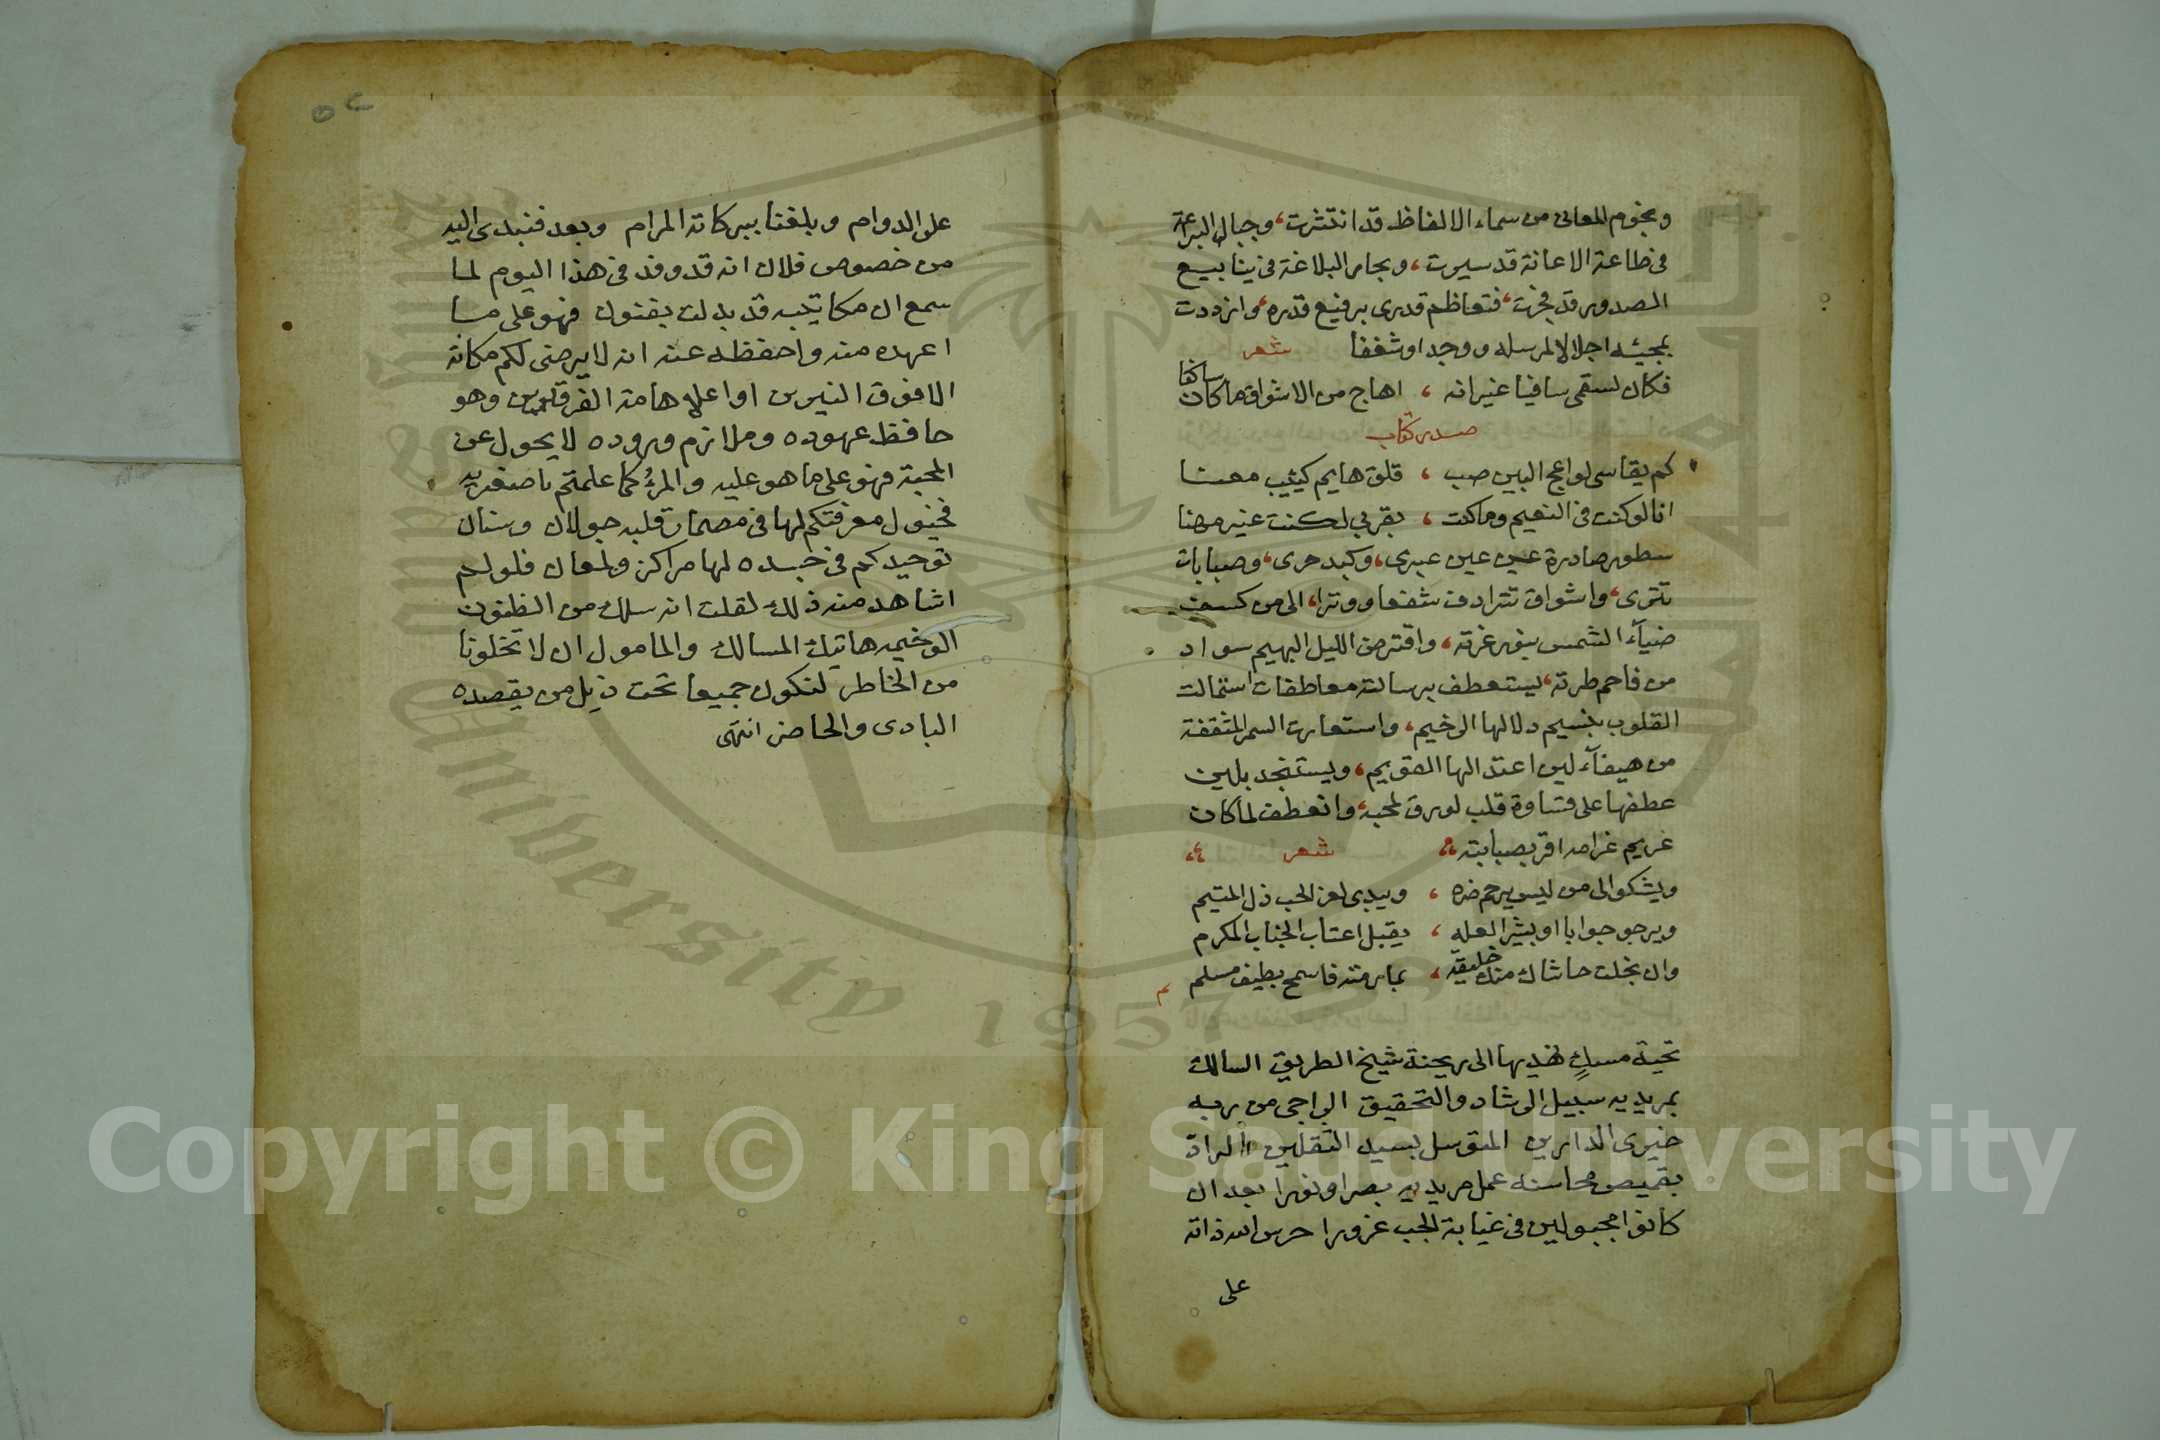 ونجوم المعانى من سماء الالفاظ قد انتثرت، وجبال البراعة
فى طاعة الاعانة قد سيرت، وبحار البلاغة فى ينابيع
الصدور قد فجرت، فتعاظم قدرى برفيع قدره، وازددت
بمجيئه اجلالا لمرسله ووجدا وشغفا شعر
فكان لسقمى سافيا غير انه ، اهاج من الاشواق ما كان ساكنا
صدر كتاب
كم يقاسى لواعج البين صب ، قلق هايم كئيب معنا
انا لو كنت فى النعيم وما كنت ، بقربي لكنت غير مهنا
سطور صادرة عن عين عبرى، وكبد حرى، وصبابات
تترى، واشواق تترادف شفعا ووترا، الى من كسفت
ضيآء الشمس بنور غرته، واقترض الليل البهيم سواد
من فاحم طرته، ليستعطف برسالته معاطفا استمالت
القلوب بنسيم دلالها الرخيم، واستعارت السمر المثقفة
من هيفآء لين اعتدالها القويم، ويستنجد بلين
عطفها على قساوة قلب لورق لمحبه، وانعطف لما كان
غريم غرامه اقر بصبابته شعر
ويشكو الى من ليس يرحم ضره ، ويبدى لعز الحب ذل المتيم
ويرجو جوابا او بشيرا لعله ، يقبل اعتاب الجناب المكرم
وان بخلت حاشاك منك خليقة ، بما رمته فاسمح بطيف مسلم
م
تحية مسك نهديها الى ريحنة شيخ الطريق السالك
بمريديه سبيل الرشاد والتحقيق الراجى من ربه
خيرى الدارين المتوسل بسيد الثقلين الراد
بقميص محاسنه عمل مريديه بصرا ونورا بعد ان
كانوا مجبولين فى غيابة الجب غرورا حرس الله ذاته
على
٥٢
على الدوام وبلغنا ببركاته المرام وبعد فنبدى اليه
من خصوص فلان انه قد وفد فى هذا اليوم لما
سمع ان مكاتيبه قد بدلت بفنون فهو على ما
اعهده منه واحفظه عنه انه لا يرضى لكم مكانة
الا فوق النيرين او اعلاه هامة الفرقدين وهو
حافظ عهوده وملازم وروده لا يحول عن
المحبة فهو على ما هو عليه والمرء كما علمتم باصغريه
فخيول معرفتكم لها فى مضمار قلبه جولان وسنان
توحيدكم فى خبده لها مراكز ولمعان فلو لم
اشاهد منه ذلك لقلت انه سلك من الظنون
الوخيمه هاتيك المسالك والمامول ان لا تخلونا
من الخاطر لنكون جميعا تحت ذيل من يقصده
البادى والحاضر انتهى
King Saud University
1957
Copyright © King Saud University